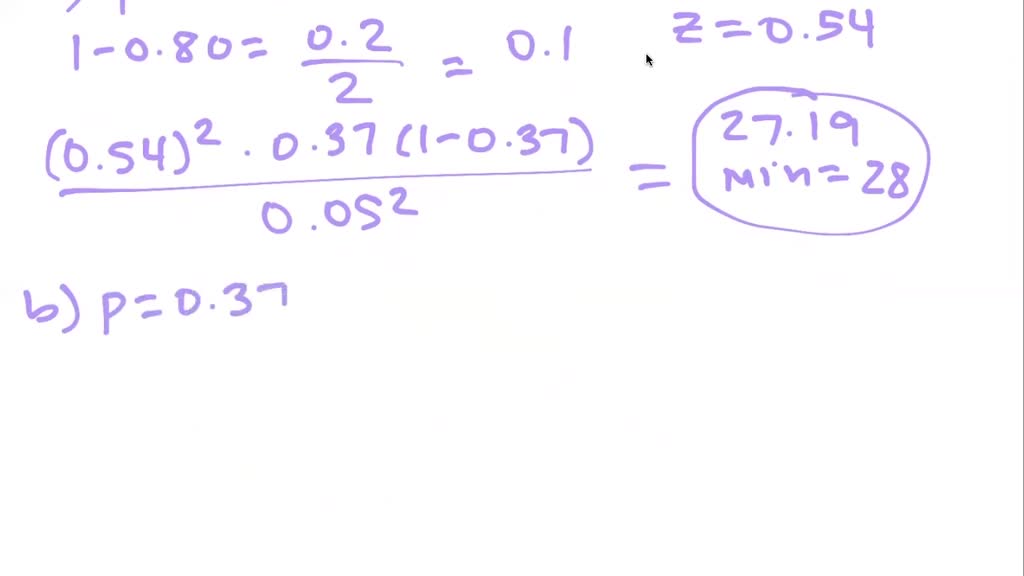 1-0.80= 0.2/2 = 0.1 z=0.54
(0.54)² · 0.37(1-0.37) / 0.05² = 27.19
min=28
b) p=0.37